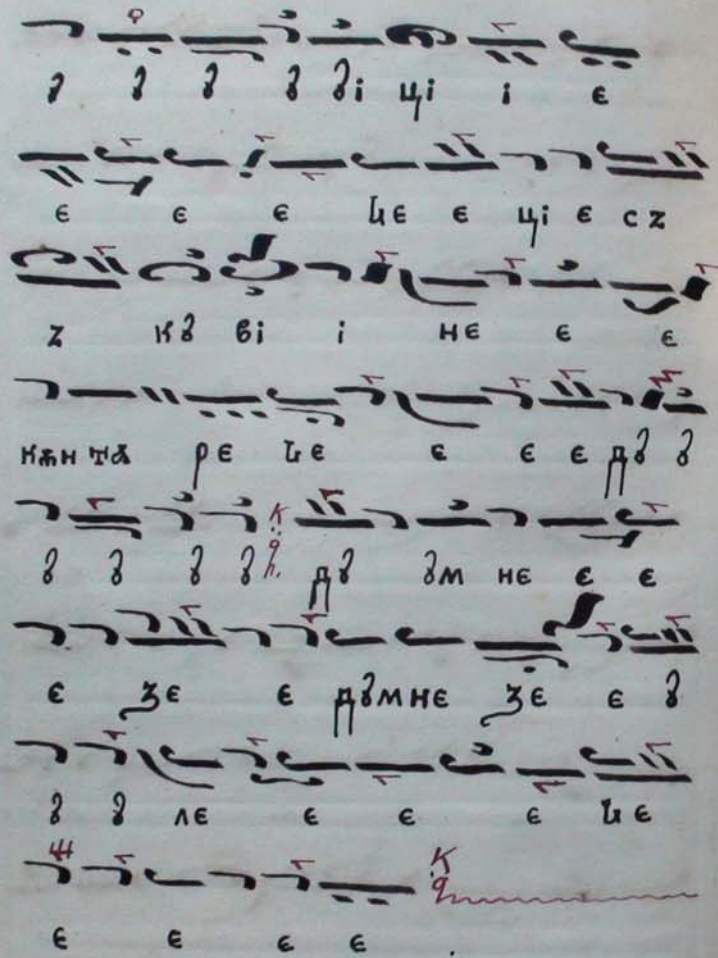 ꙋ ꙋ ꙋ ꙋ ꙋі ці і є
є є є ꙟє є ці є сz
z кꙋ ві і нє є є
кѫн тѫ рє ꙟє є є є дꙋ ꙋ
ꙋ ꙋ ꙋ ꙋ дꙋ ꙋм нє є є
є зє є дꙋмнє зє є ꙋ
ꙋ ꙋ лє є є є ꙟє
є є є є